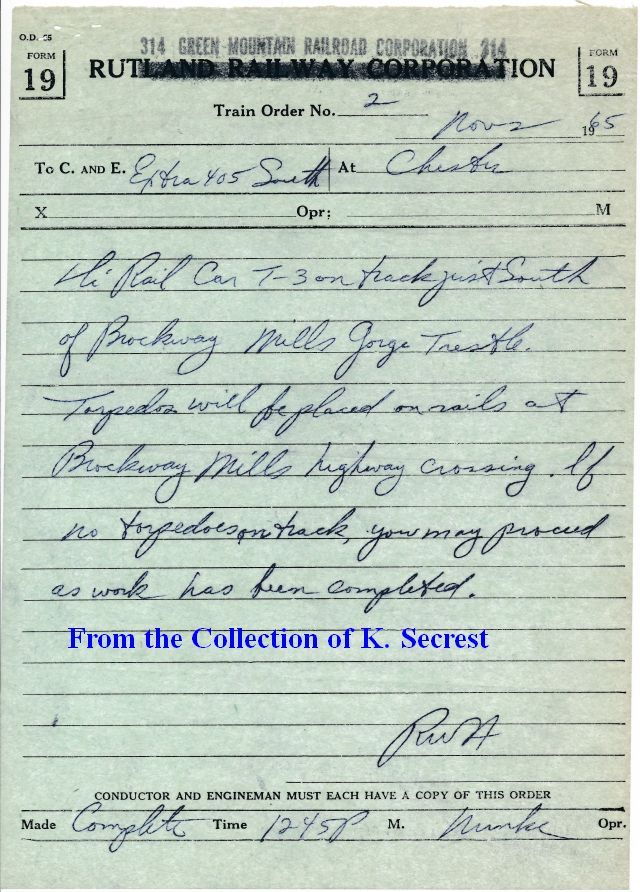 O.D. 55
314 GREEN MOUNTAIN RAILROAD CORPORATION 314
FORM 19 RUTLAND RAILWAY CORPORATION FORM 19
Train Order No. 2
Nov 2 1965
To C. AND E. Extra 405 South At Chester
X Opr; M
Hi Rail Car T-3 on track just South
of Brockway Mills Gorge Trestle.
Torpedos will be placed on rails at
Brockway Mills highway crossing. If
no torpedoes on track, you may proceed
as work has been completed.
From the Collection of K. Secrest
CONDUCTOR AND ENGINEMAN MUST EACH HAVE A COPY OF THIS ORDER
Made Complete Time 1245P M. Opr.